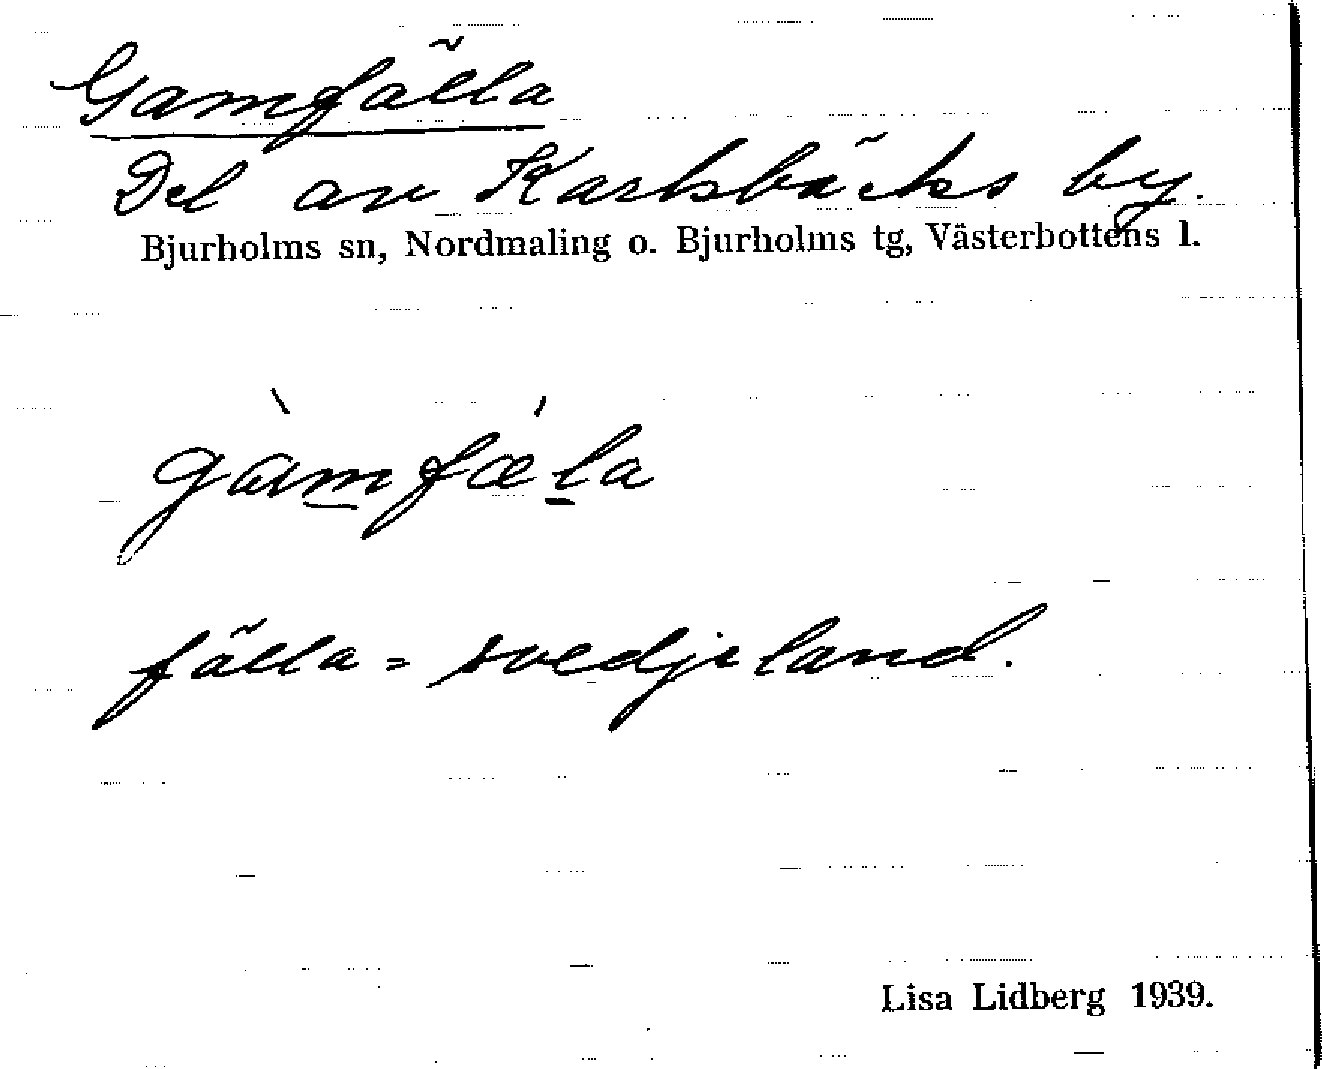 Gamfälla
Del av Karlsbäcks by.
Bjurholms sn, Nordmaling o. Bjurholms tg, Västerbottens l.
gàm̲fæ´l̲a
fälla = svedjeland.
Lisa Lidberg 1939.